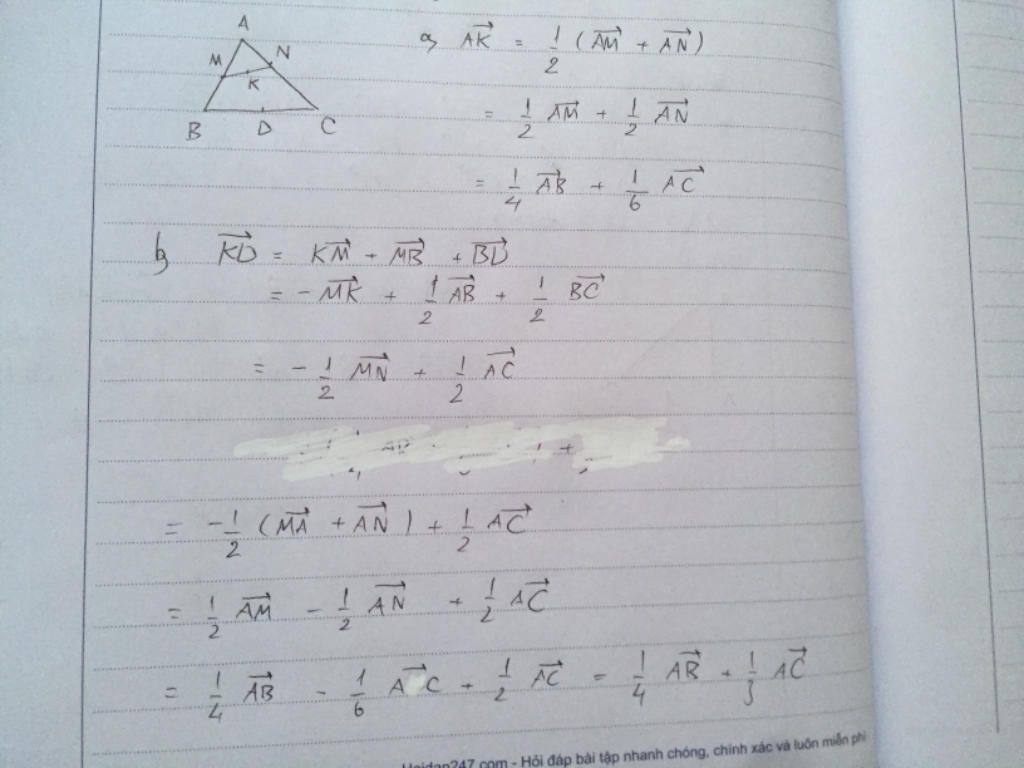 A
M N
K
B D C
a) \overrightarrow{AK} = \frac{1}{2} (\overrightarrow{AM} + \overrightarrow{AN})
= \frac{1}{2} \overrightarrow{AM} + \frac{1}{2} \overrightarrow{AN}
= \frac{1}{4} \overrightarrow{AB} + \frac{1}{6} \overrightarrow{AC}
b) \overrightarrow{KD} = \overrightarrow{KM} + \overrightarrow{MB} + \overrightarrow{BD}
= - \overrightarrow{MK} + \frac{1}{2} \overrightarrow{AB} + \frac{1}{2} \overrightarrow{BC}
= - \frac{1}{2} \overrightarrow{MN} + \frac{1}{2} \overrightarrow{AC}
= - \frac{1}{2} (\overrightarrow{MA} + \overrightarrow{AN}) + \frac{1}{2} \overrightarrow{AC}
= \frac{1}{2} \overrightarrow{AM} - \frac{1}{2} \overrightarrow{AN} + \frac{1}{2} \overrightarrow{AC}
= \frac{1}{4} \overrightarrow{AB} - \frac{1}{6} \overrightarrow{AC} + \frac{1}{2} \overrightarrow{AC} = \frac{1}{4} \overrightarrow{AB} + \frac{1}{3} \overrightarrow{AC}
Hoidap247.com - Hỏi đáp bài tập nhanh chóng, chính xác và luôn miễn phí